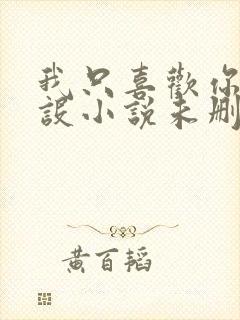 我只喜歡你
設小說未刪
黃百韜